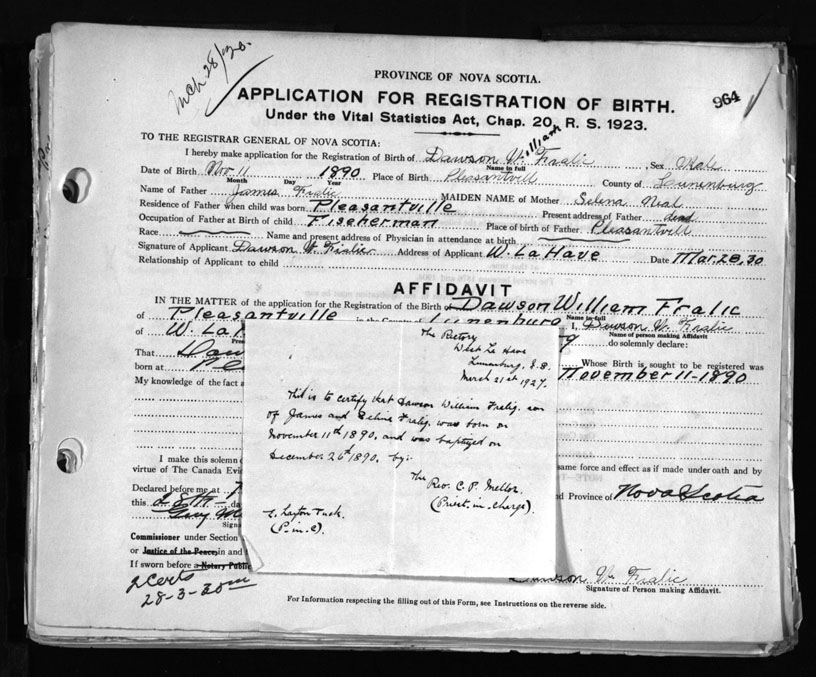 Mch 28/30.
PROVINCE OF NOVA SCOTIA.
964
APPLICATION FOR REGISTRATION OF BIRTH.
Under the Vital Statistics Act, Chap. 20, R. S. 1923.
TO THE REGISTRAR GENERAL OF NOVA SCOTIA:
I hereby make application for the Registration of Birth of Dawson W. William Fralic Sex Male
Name in full
Date of Birth Nov. 11 1890 Place of Birth Pleasantvill County of Lunenburg
Month Day Year
Name of Father James Fralic MAIDEN NAME of Mother Selena Neal
Residence of Father when child was born Pleasantville Present address of Father dead
Occupation of Father at Birth of child Fischerman Place of birth of Father Pleasantvill
Race Name and present address of Physician in attendance at birth
Signature of Applicant Dawson W. Fralic Address of Applicant W. La Have Date Mar. 28, 30
Relationship of Applicant to child
AFFIDAVIT
IN THE MATTER of the application for the Registration of the Birth of Dawson William Fralic
Name in full
of Pleasantville in the County of Lunenburg I, Dawson W. Fralic
Name of person making Affidavit
of W. La do solemnly declare:
That Daw Whose Birth is sought to be registered was
born at November 11-1890
My knowledge of the fact a
I make this solemn d same force and effect as if made under oath and by
virtue of The Canada Evi
Declared before me at and Province of Nova Scotia
this 28th da
Guy
Commissioner under Section
or Justice of the Peace, in and
If sworn before a Notary Public
2 Certs
28-3-30
Dawson Wm Fralic
Signature of Person making Affidavit.
For Information respecting the filling out of this Form, see Instructions on the reverse side.
The Rectory
West La Have
Lunenburg, N.S.
March 21st 1927.
This is to certify that Dawson William Fralig. son
of James and Celina Fralig. was born on
November 11th 1890. and was baptized on
December 26th 1890. by:-
The Rev. C. P. Mellor.
(Priest-in-charge).
E. Laxton Tuck.
(P-in-c).